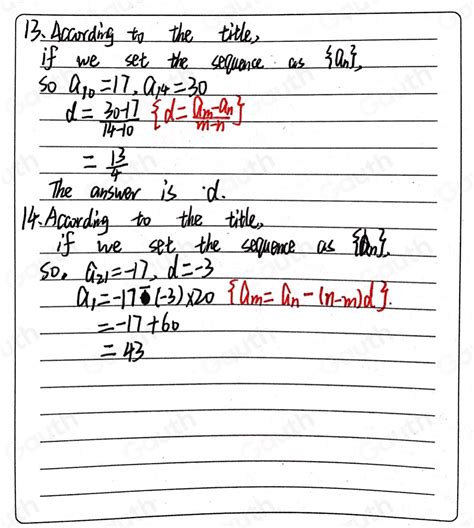 13. According to the title,
if we set the sequence as {an},
so a10 = 17, a14 = 30
d = 30-17/14-10 {d = am-an/m-n}
= 13/4
The answer is d.
14. According to the title,
if we set the sequence as {an},
so, a21 = -17, d = -3
a1 = -17 - (-3) x 20 {am = an - (n-m)d}.
= -17 + 60
= 43